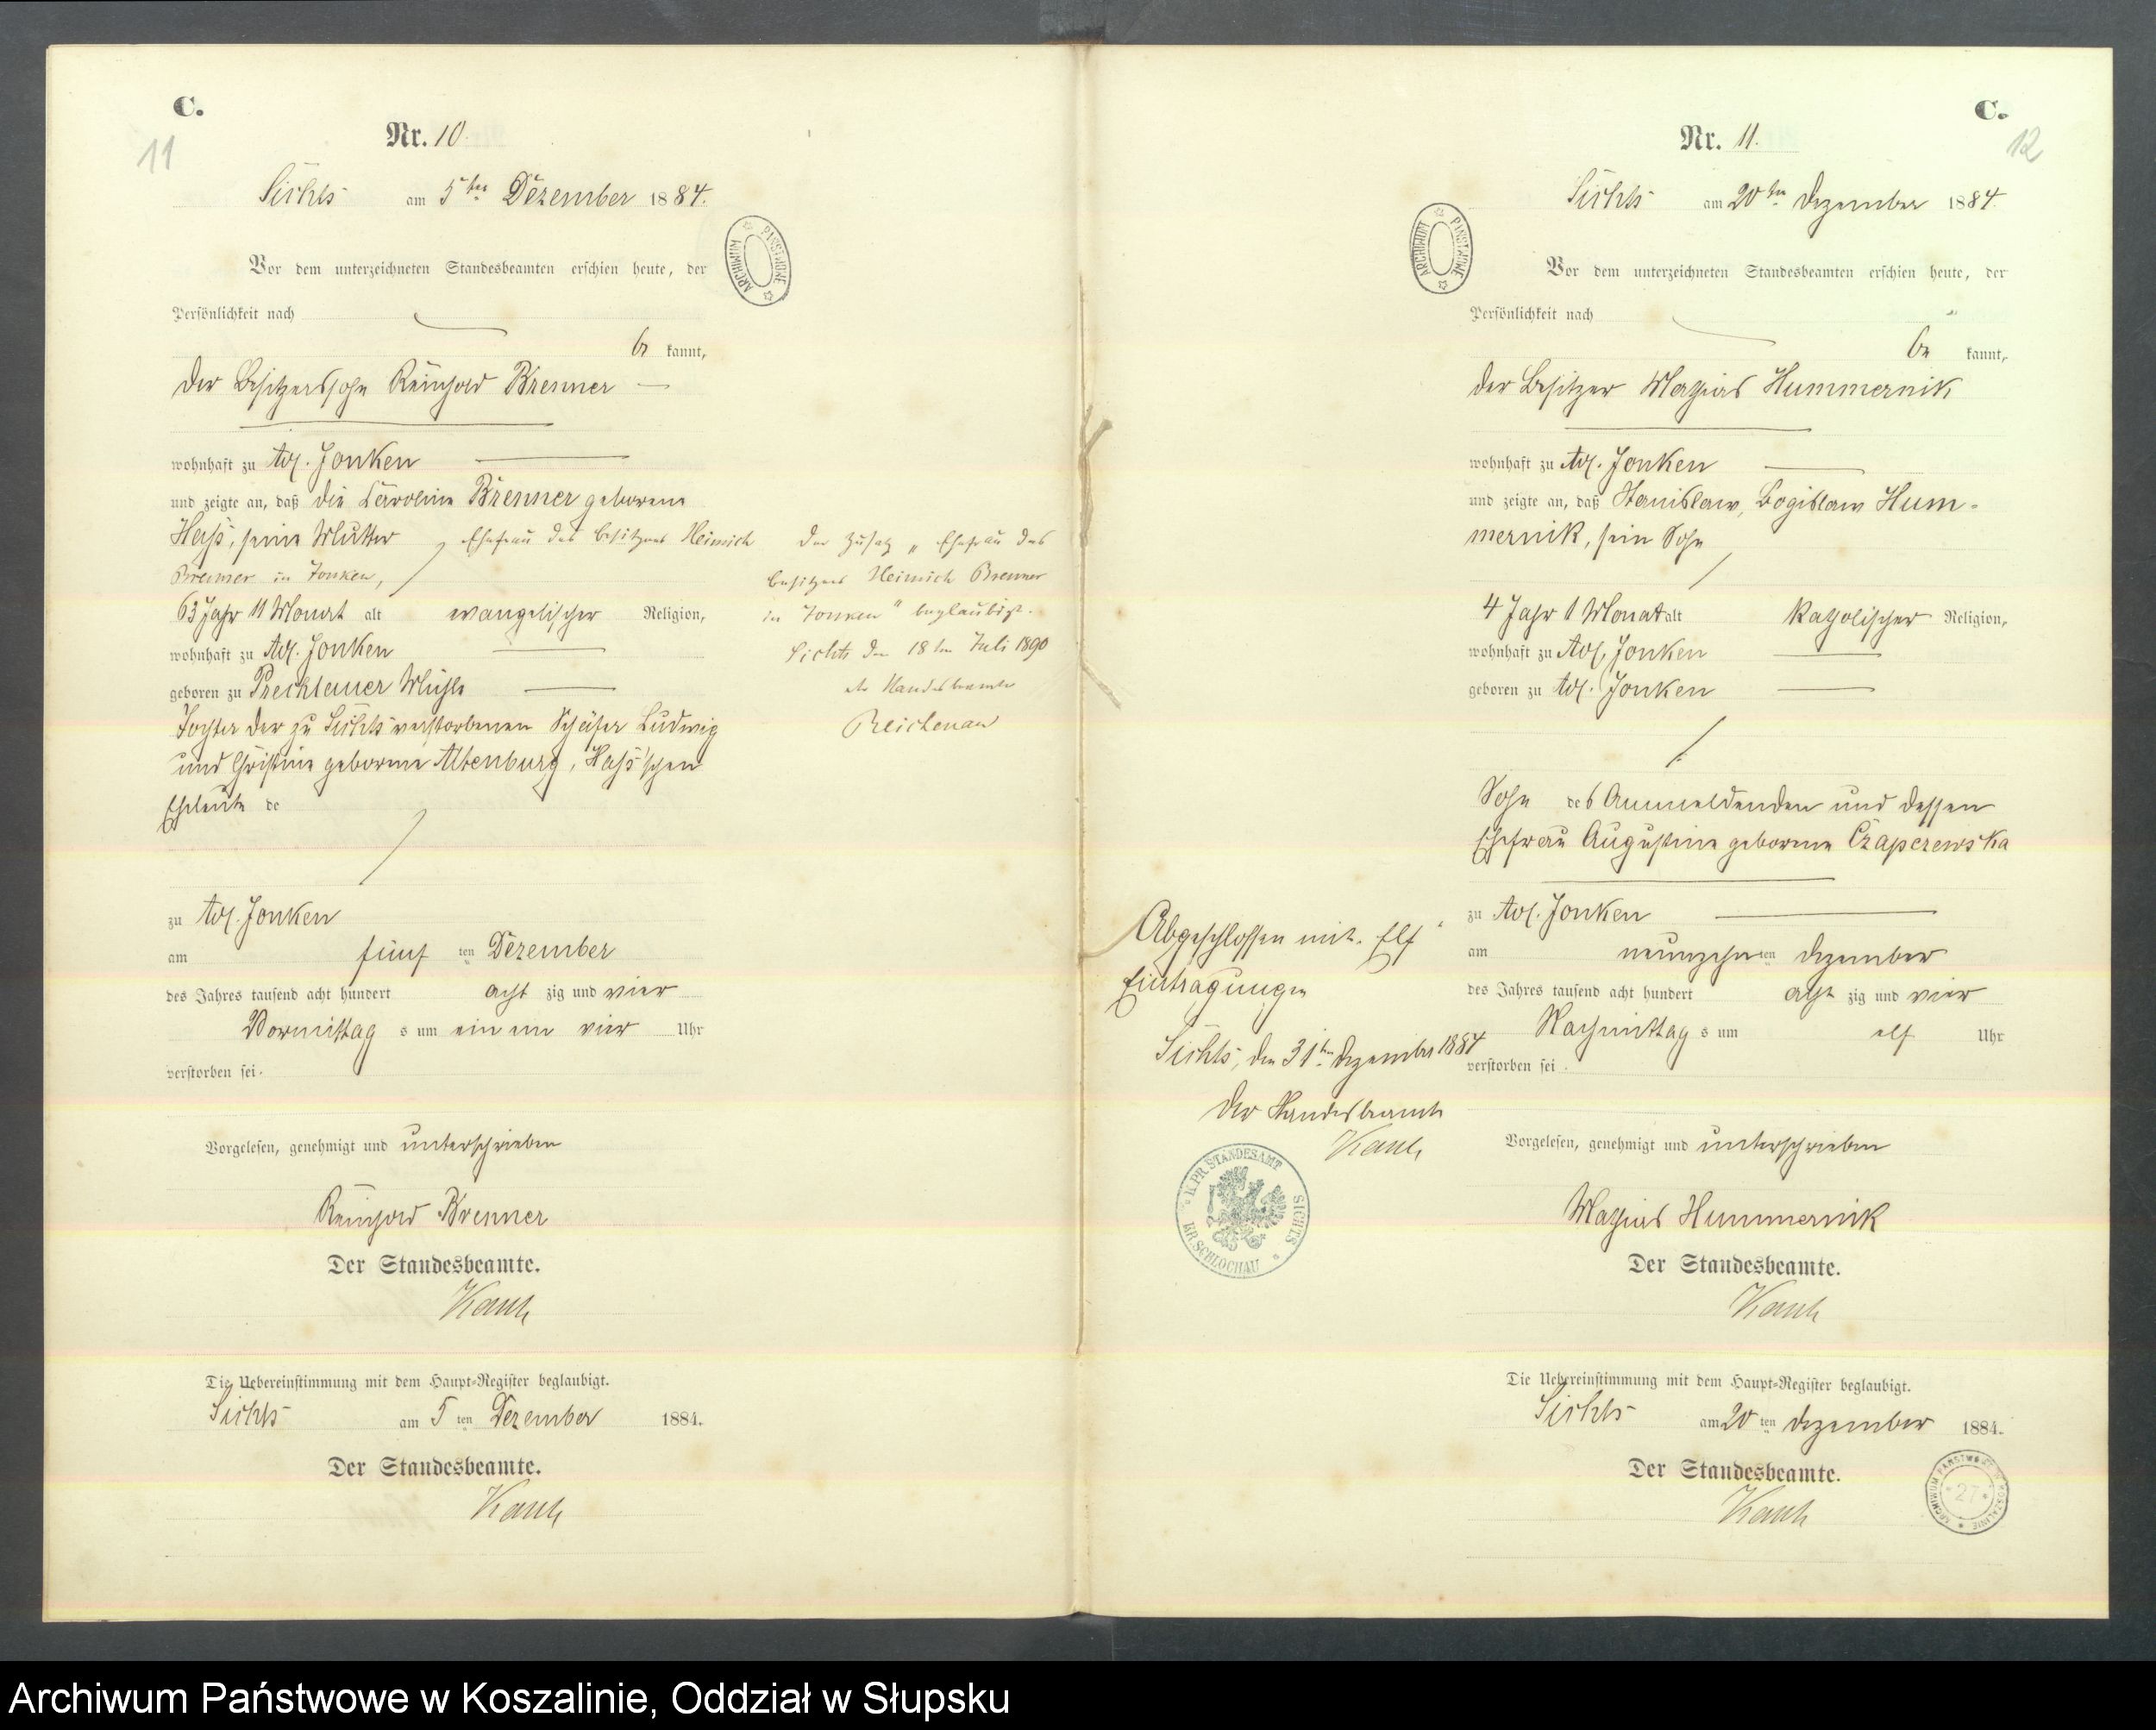 C.
11
Nr. 10.
Sichts am 5ten Dezember 1884.
Vor dem unterzeichneten Standesbeamten erschien heute, der
Persönlichkeit nach
be kannt,
der Besitzerssohn Reinhold Brenner
wohnhaft zu Adl. Jonken
und zeigte an, daß die Caroline Brenner geborene
Hass, seine Mutter, Ehefrau des Besitzers Heinrich
Brenner in Jonken,
63 Jahr 11 Monat alt evangelischer Religion,
wohnhaft zu Adl. Jonken
geboren zu Prechlauer Mühle
Tochter der zu Sichts verstorbenen Schäfer Ludwig
und Christine geborene Altenburg, Hass'schen
Eheleute de
zu Adl. Jonken
am fünf ten Dezember
des Jahres tausend acht hundert acht zig und vier
Vormittag s um ein vier Uhr
verstorben sei.
Vorgelesen, genehmigt und unterschrieben
Reinhold Brenner
Der Standesbeamte.
Die Uebereinstimmung mit dem Haupt-Register beglaubigt.
Sichts am 5 ten Dezember 1884.
Der Standesbeamte.
Der Zusatz „Ehefrau des
Besitzers Heinrich Brenner
in Jonken" beglaubigt.
Sichts den 18ten Juli 1890
Der Standesbeamte
Reichenau
ARCHIWUM PAŃSTWOWE
C.
12
Nr. 11.
Sichts am 20ten Dezember 1884.
Vor dem unterzeichneten Standesbeamten erschien heute, der
Persönlichkeit nach
be kannt,
der Besitzer Mathias Hummernik
wohnhaft zu Adl. Jonken
und zeigte an, daß Stanislaw, Bogislaw Hum-
mernik, sein Sohn
4 Jahr 1 Monat alt katholischer Religion,
wohnhaft zu Adl. Jonken
geboren zu Adl. Jonken
Sohn des Anmeldenden und dessen
Ehefrau Augustine geborene Czapczewska
zu Adl. Jonken
am neunzehn ten Dezember
des Jahres tausend acht hundert acht zig und vier
Nachmittag s um elf Uhr
verstorben sei.
Vorgelesen, genehmigt und unterschrieben
Mathias Hummernik
Der Standesbeamte.
Die Uebereinstimmung mit dem Haupt-Register beglaubigt.
Sichts am 20 ten Dezember 1884.
Der Standesbeamte.
Abgeschlossen mit elf
Eintragungen
Sichts, den 31ten Dezember 1884
Der Standesbeamte
K. PR. STANDESAMT SICHTS
KR. SCHLOCHAU
ARCHIWUM PAŃSTWOWE
ARCHIWUM PAŃSTWOWE W KOSZALINIE
27
Archiwum Państwowe w Koszalinie, Oddział w Słupsku